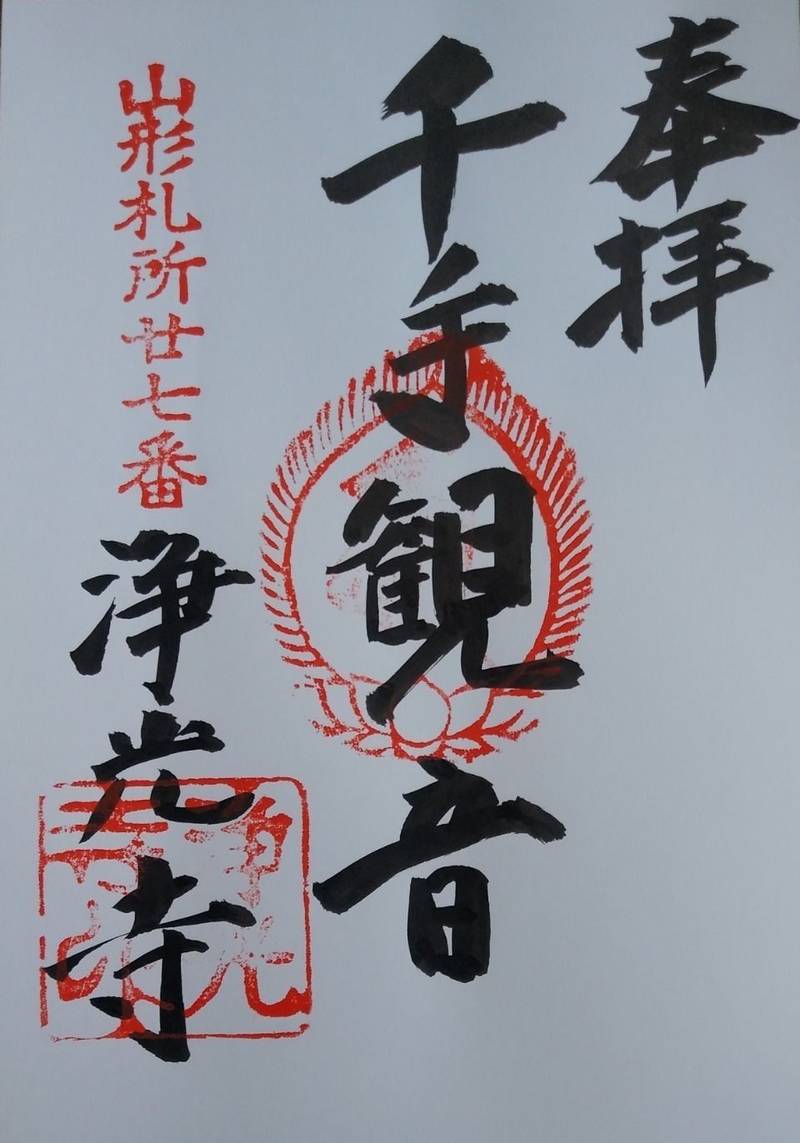 奉拝
千手観音
山形札所廿七番
浄光寺